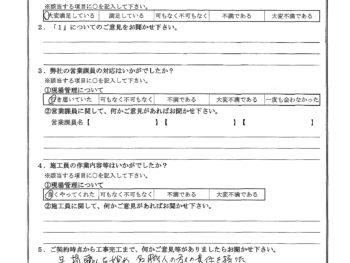 ※該当する項目に○を記入して下さい。
大変満足している 満足している 可もなく不可もなく 不満である 大変不満である
2．「1」についてのご意見をお聞かせ下さい。
3．弊社の営業課員の対応はいかがでしたか？
※該当する項目に○を記入して下さい。
①現場管理について
行き届いていた 可もなく不可もなく 不満である 大変不満である 一度も会わなかった
②営業課員に関して、何かご意見があればお聞かせ下さい。
営業課員名【 】【 】【 】
4．施工員の作業内容等はいかがでしたか？
※該当する項目に○を記入して下さい。
①現場管理について
良くやってくれた 可もなく不可もなく 不満である 大変不満である
②施工員に関して、何かご意見があればお聞かせ下さい。
5．ご契約時点から工事完了まで、何かご意見等がありましたらお聞かせ下さい。